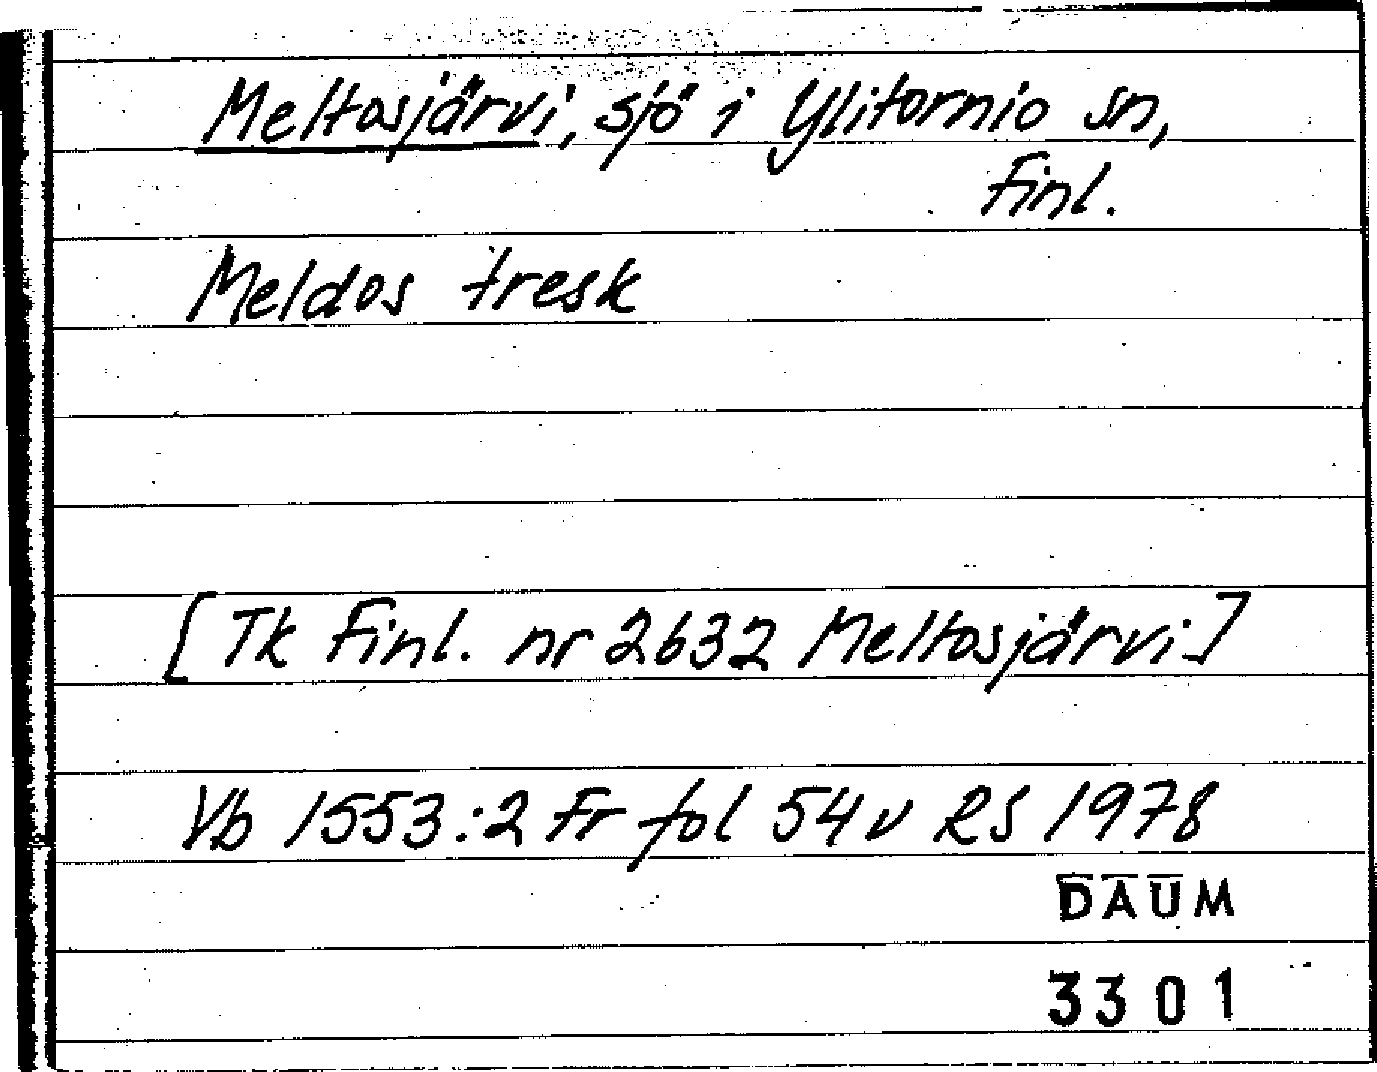 Meltosjärvi, sjö i Ylitornio sn,
Finl.
Meldos tresk
[Tk Finl. nr 2632 Meltosjärvi]
Vb 1553:2 Fr fol 54 v RS 1978
DAUM
3301